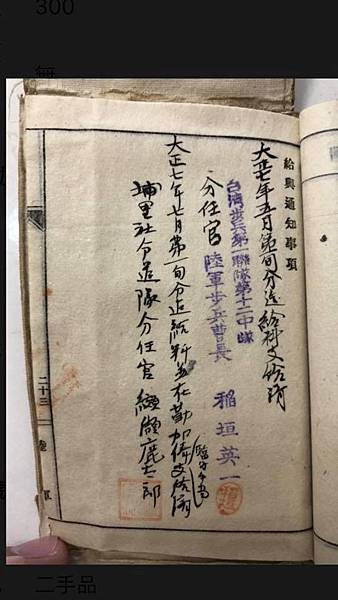 300
給與通知事項
大正七年五月第一旬分迄給料支給済
台湾歩兵第一聯隊第十二中隊
分任官 陸軍歩兵曹長 稲垣英一
大正七年七月第一旬分迄給料並在勤加俸支給済
埔里社分遣隊分任官
太郎
二十三
二手品